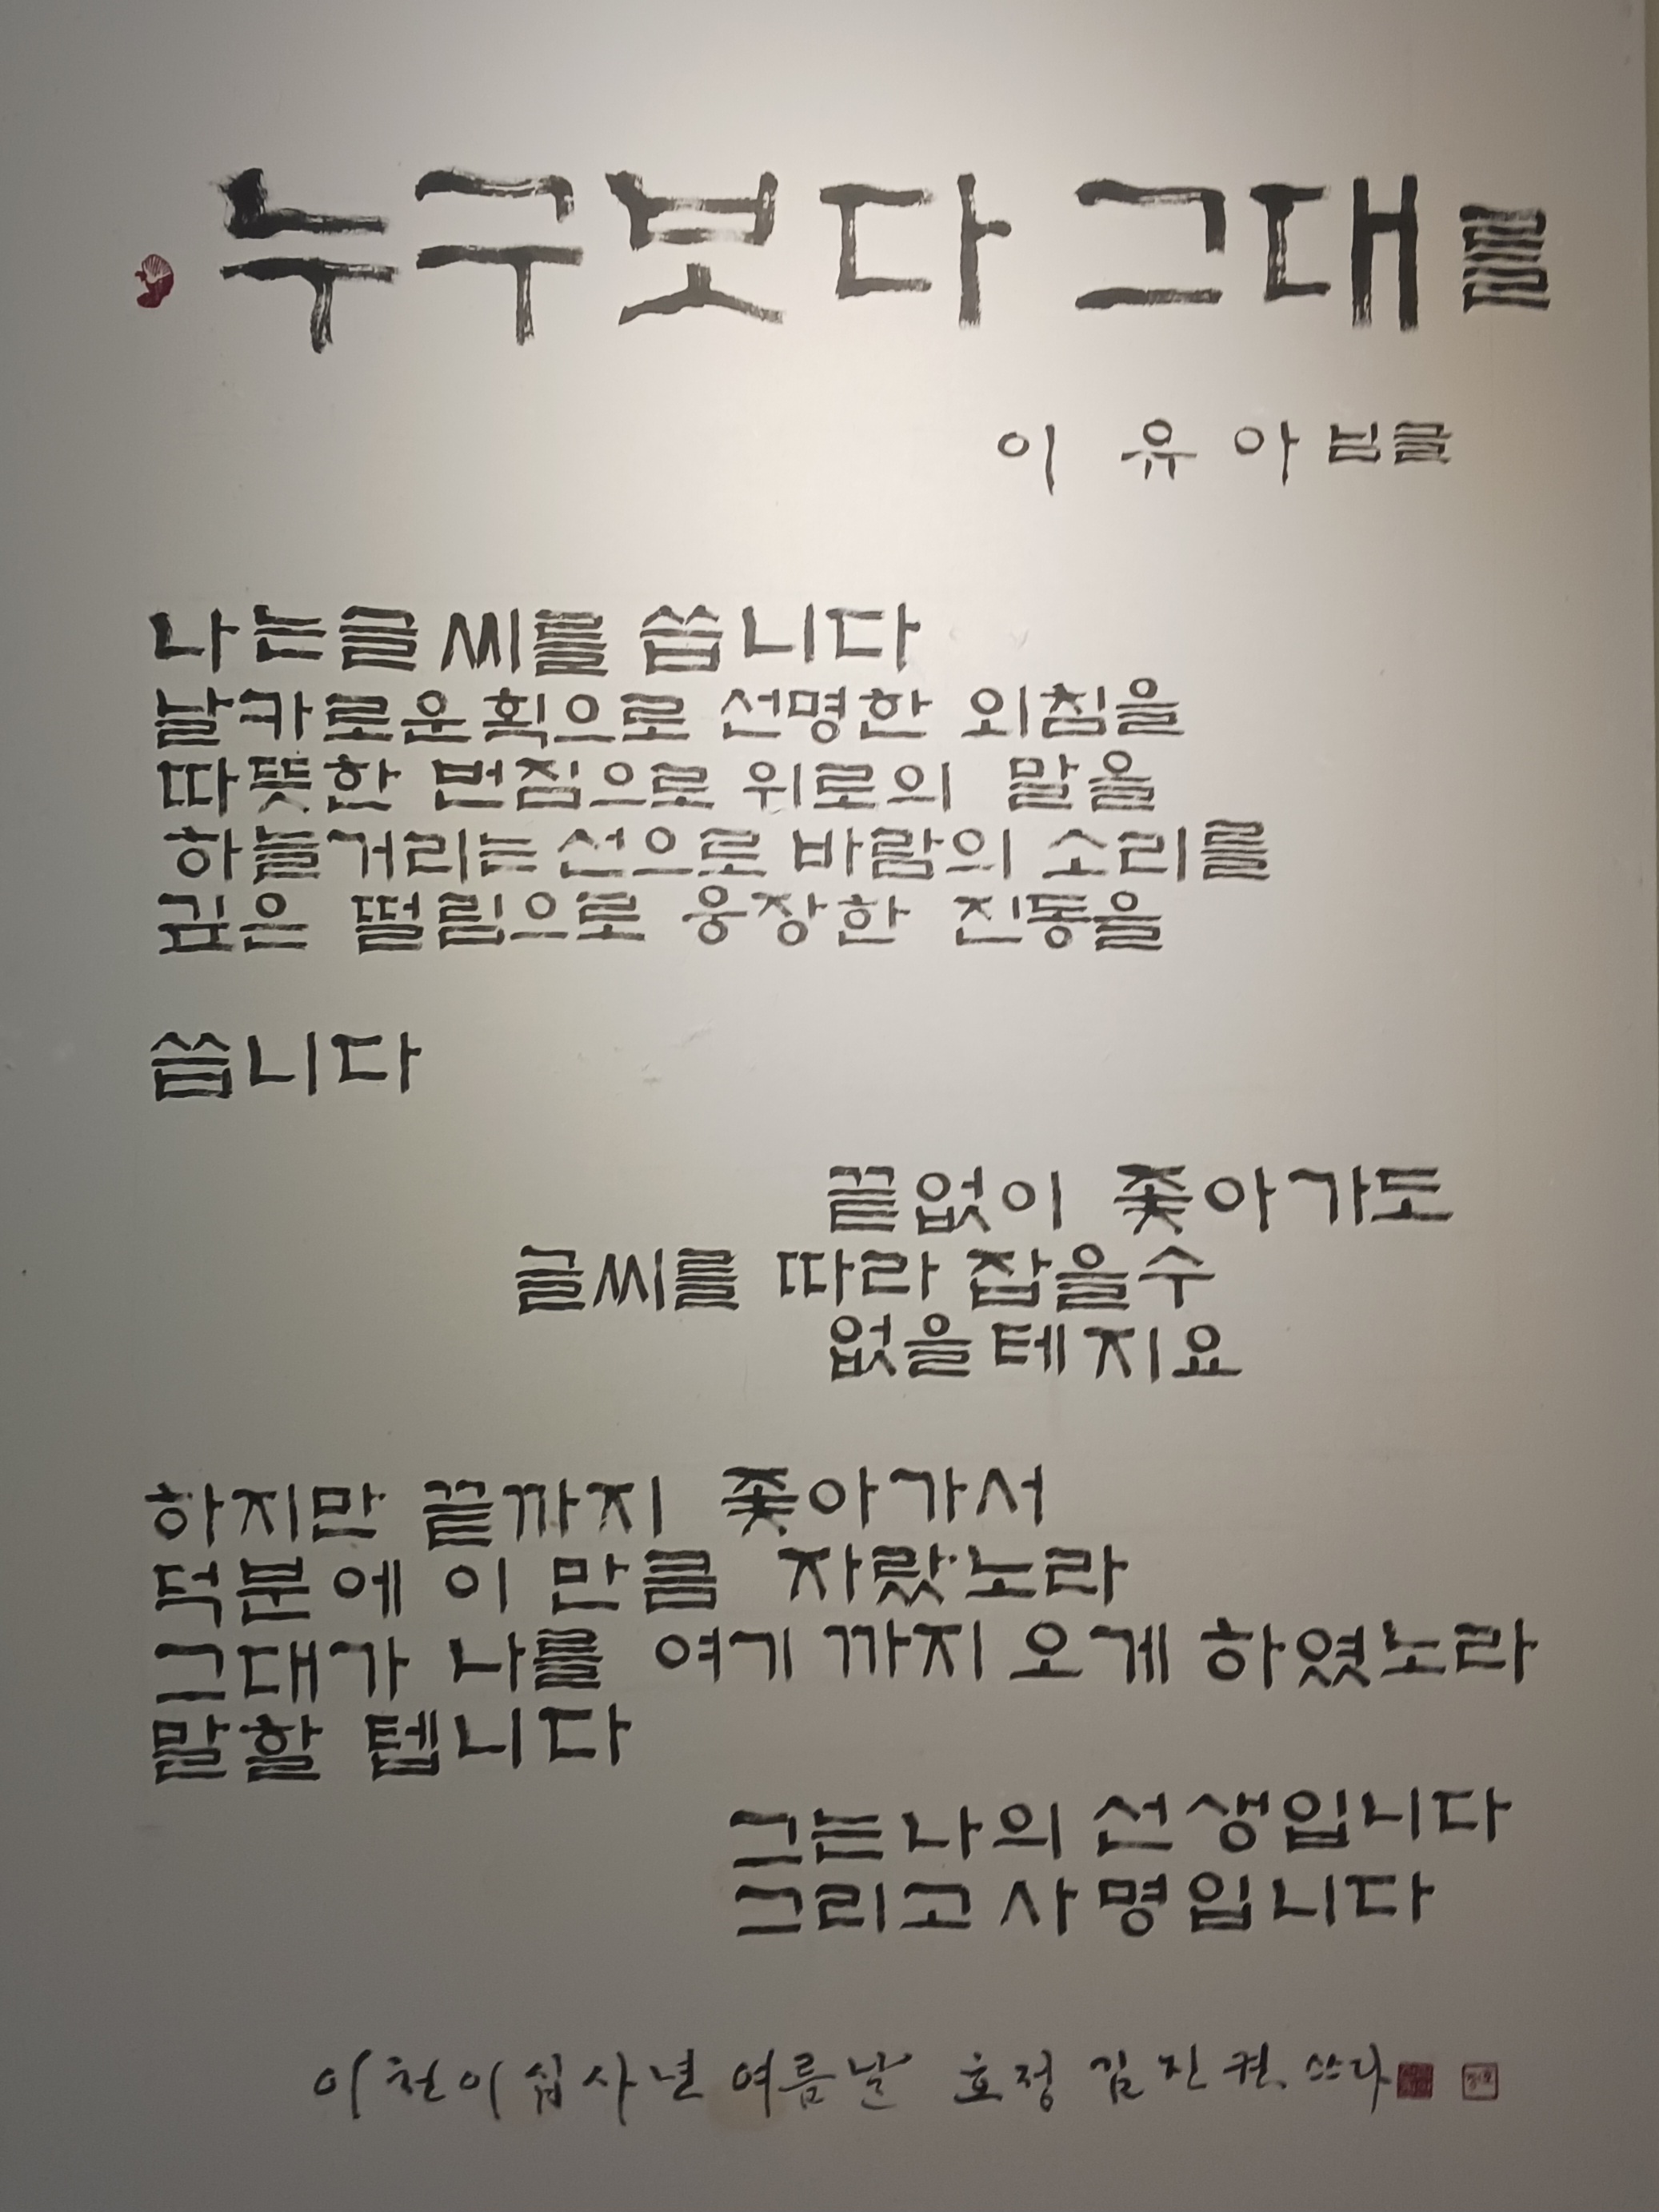 누구보다 그대를
이 유 아 빔글
나는글씨를 씁니다
날카로운획으로 선명한 외침을
따뜻한 번짐으로 위로의 말을
하늘거리는선으로 바람의 소리를
깊은 떨림으로 웅장한 진동을
씁니다
끝없이 좇아가도
글씨를 따라 잡을수
없을테지요
하지만 끝까지 좇아가서
덕분에 이 만큼 자랐노라
그대가 나를 여기까지 오게 하였노라
말할 텝니다
그는나의 선생입니다
그리고 사명입니다
이천이십사년 여름날 효정 김진권 쓰다